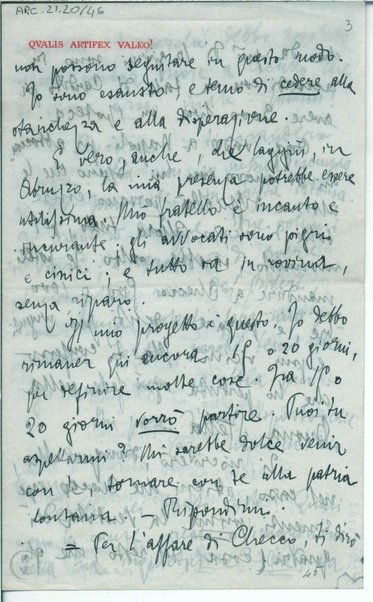 ARC. 21.20/46
3
QVALIS ARTIFEX VALEO!
non possono seguitare in questo modo.
Io sono esausto, e temo di cedere alla
stanchezza e alla disperazione.
È vero, anche, che laggiù, in
Abruzzo, la mia presenza potrebbe essere
utilissima. Mio fratello è incauto e
incurante; gli avvocati sono pigri
e cinici; e tutto va in rovina,
senza riparo.
Il mio progetto è questo. Io debbo
rimaner qui ancora 15 o 20 giorni,
per definire molte cose. Fra 15 o
20 giorni vorrò partire. Vuoi tu
aspettarmi? Mi sarebbe dolce venir
con te, tornare con te alla patria
lontana — Rispondimi.
= Per l'affare di Checco, ti dirò